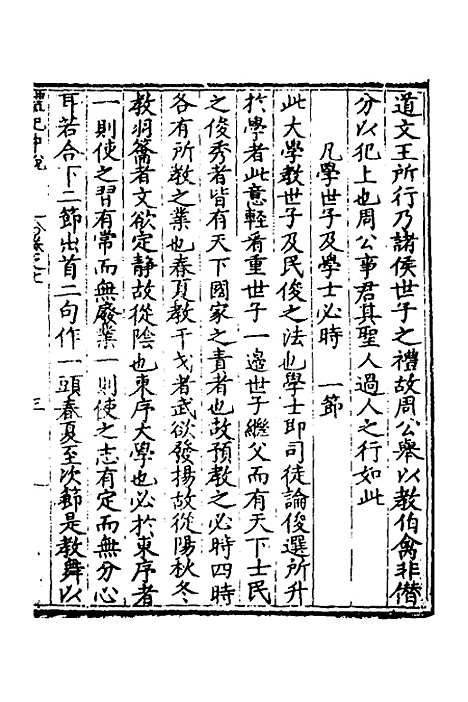 道文王所行乃諸侯世子之禮故周公舉以教伯禽非僭
分以犯上也周公事君其聖人過人之行如此
凡學世子及學士必時　一節
此大學教世子及民俊之法也學士即司徒論俊選所升
於學者此意輕看重世子一邊世子繼父而有天下士民
之俊秀者皆有天下國家之責者也故預教之必時四時
各有所教之業也春夏教干戈者武欲發揚故從陽秋冬
教羽籥者文欲定靜故從陰也東序大學也必於東序者
一則使之習有常而無廢業一則使之志有定而無分心
耳若合下二節出首二句作一頭春夏至次節是教舞以
禮記中說
三